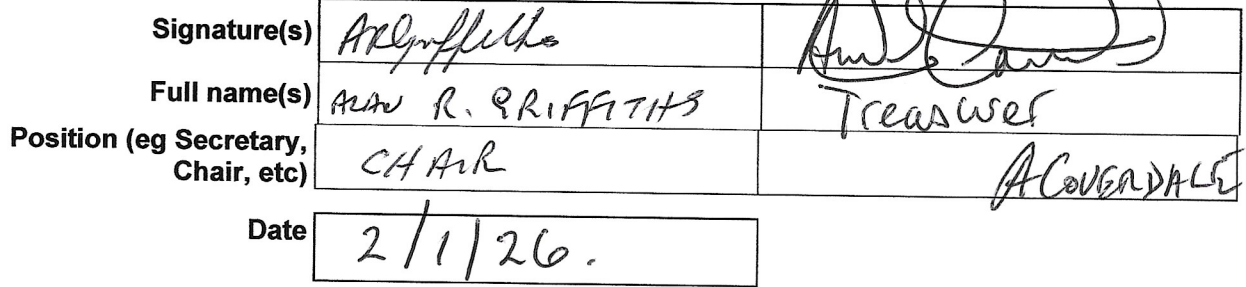 Signature(s) ARGriffiths
Full name(s) ALAN R. GRIFFITHS Treasurer
Position (eg Secretary, CHAIR A COVERDALE
Chair, etc)
Date 2/1/26.